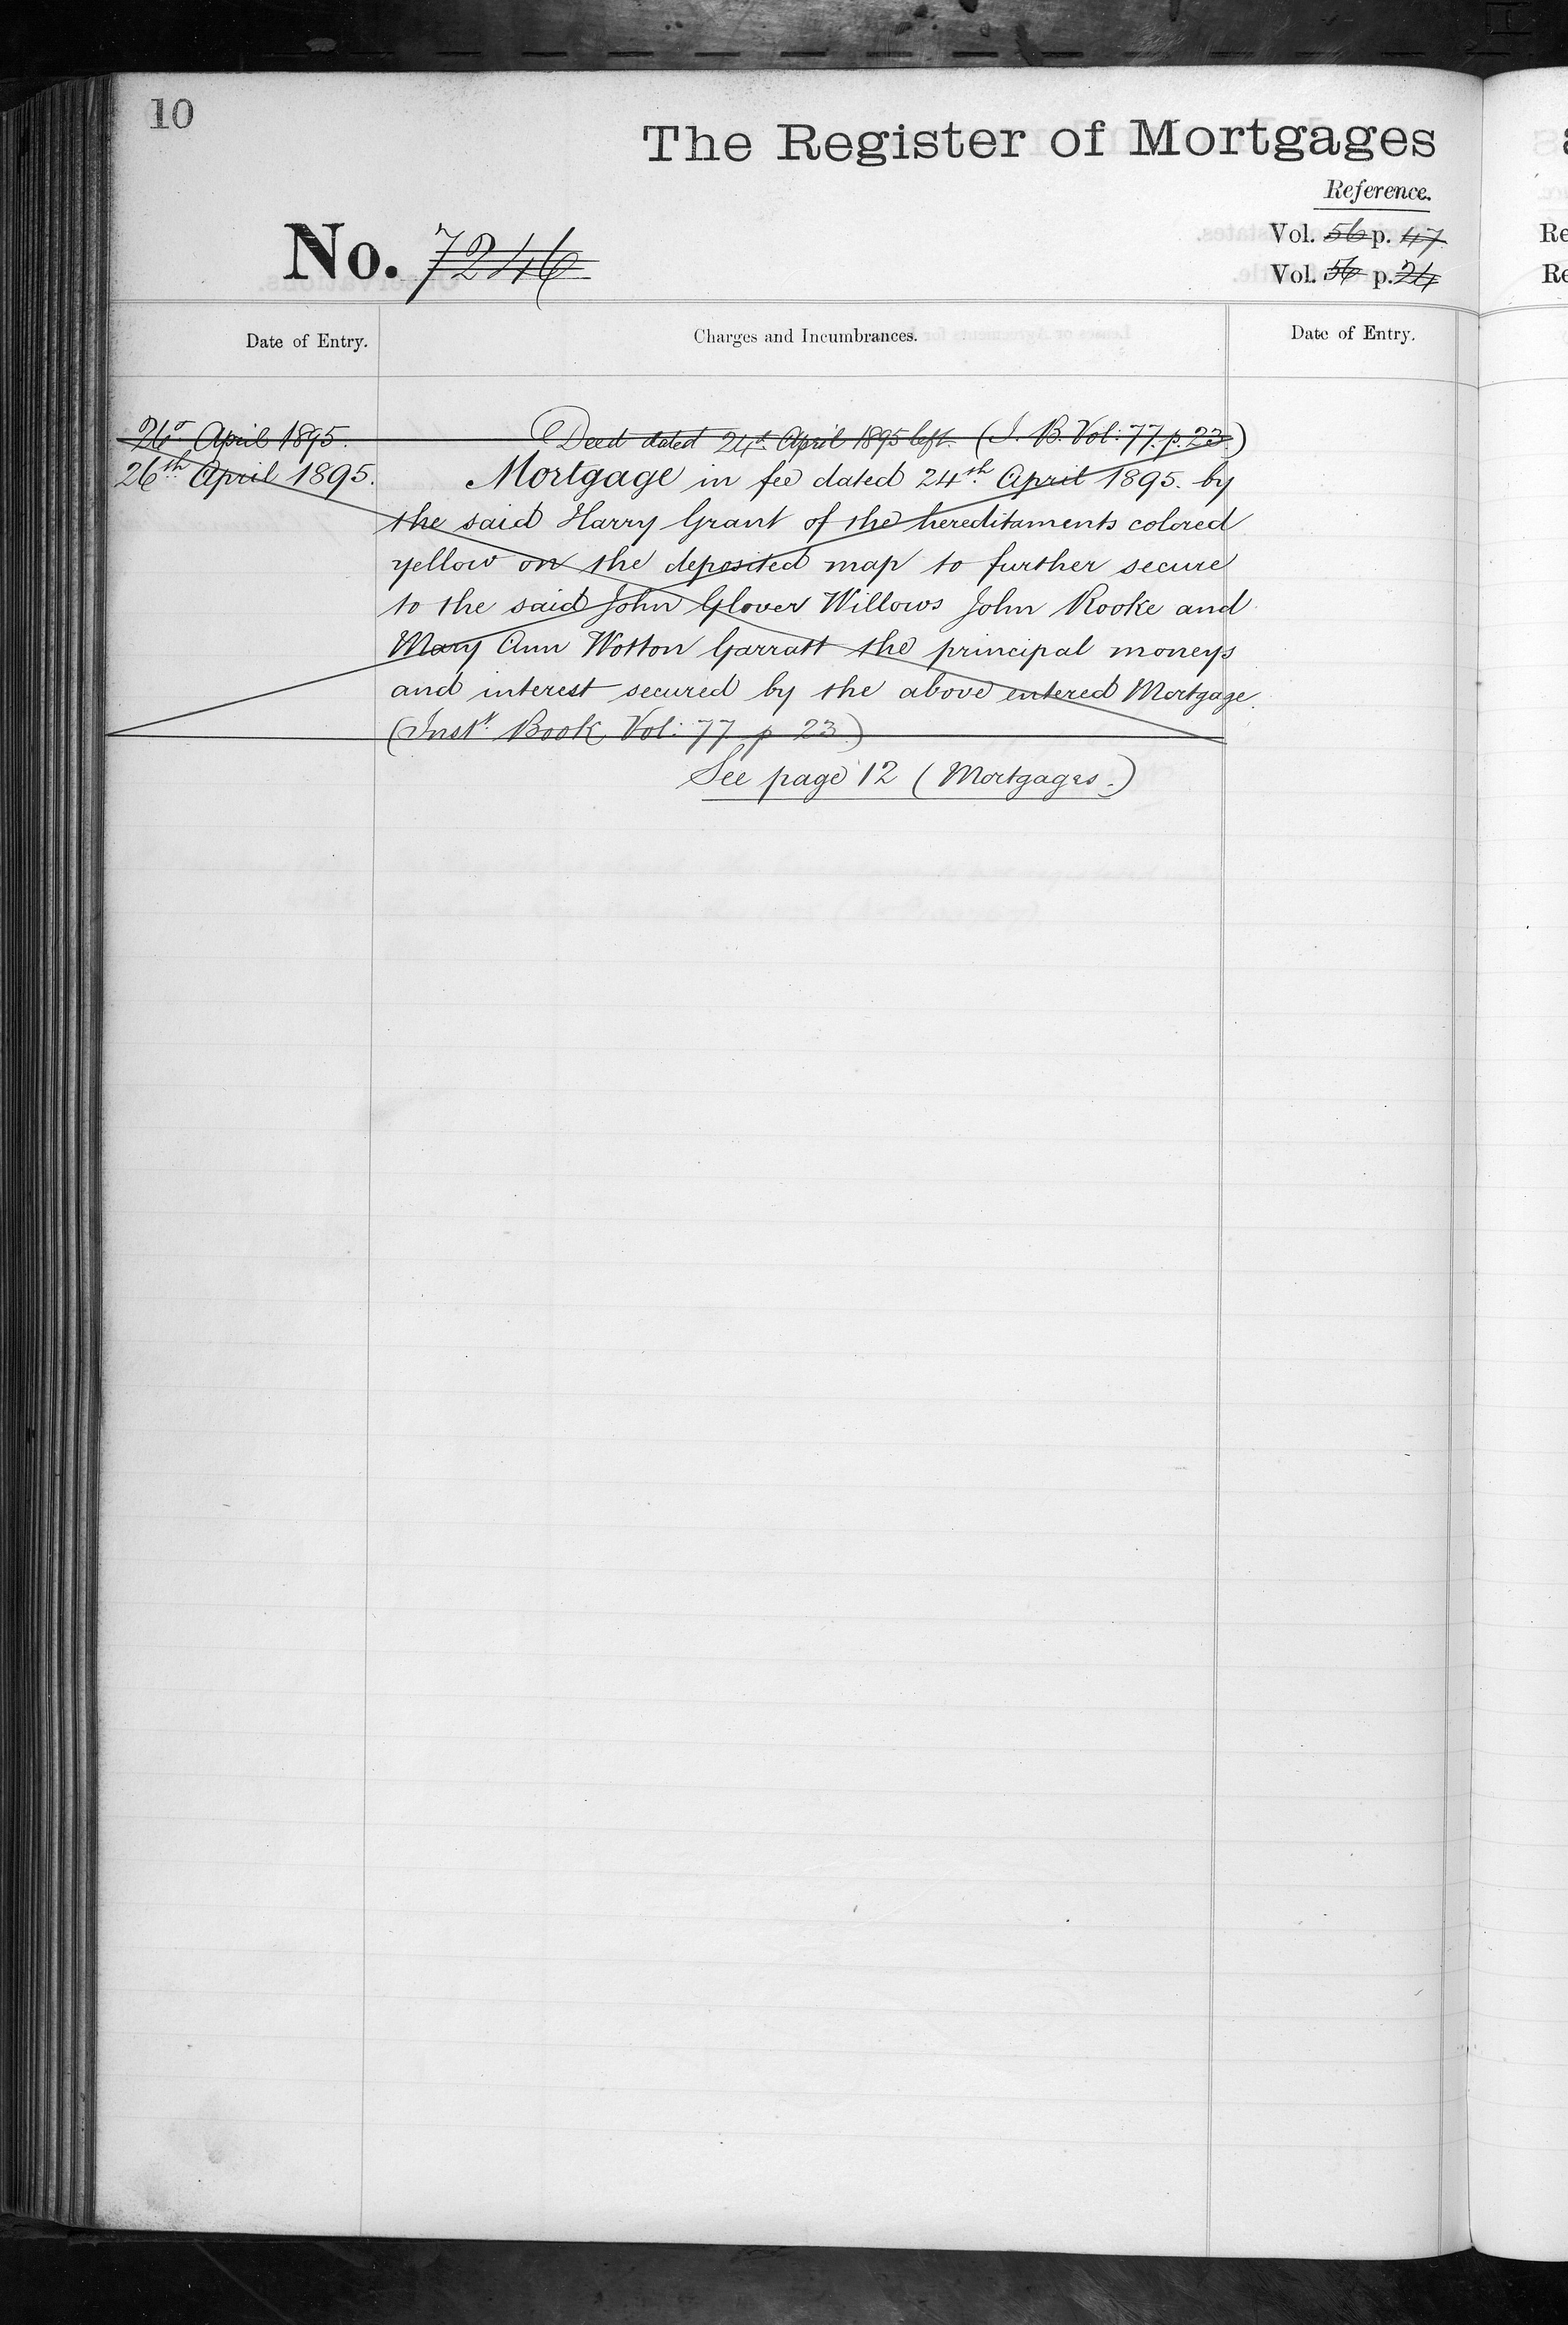 10
The Register of Mortgages
Reference.
No. 7246
Vol. 56 p. 47
Vol. 56 p. 24
Date of Entry.
Charges and Incumbrances.
Date of Entry.
26 April 1895.
Deed dated 24th April 1895 left. (I. B. Vol: 77. p. 23.)
26th April 1895.
Mortgage in fee dated 24th April 1895. by
the said Harry Grant of the hereditaments colored
yellow on the deposited map to further secure
to the said John Glover Willows John Rooke and
Mary Ann Wotton Garratt the principal moneys
and interest secured by the above entered Mortgage.
(Inst. Book Vol: 77 p 23.)
See page 12 (Mortgages.)
Re
Re